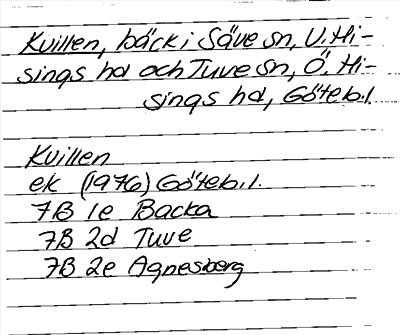 Kvillen, bäck i Säve sn, V. Hi-
sings hd och Tuve sn, Ö. Hi-
sings hd, Göteb.l.
Kvillen
ek (1976) Göteb.l.
7B 1e Backa
7B 2d Tuve
7B 2e Agnesberg